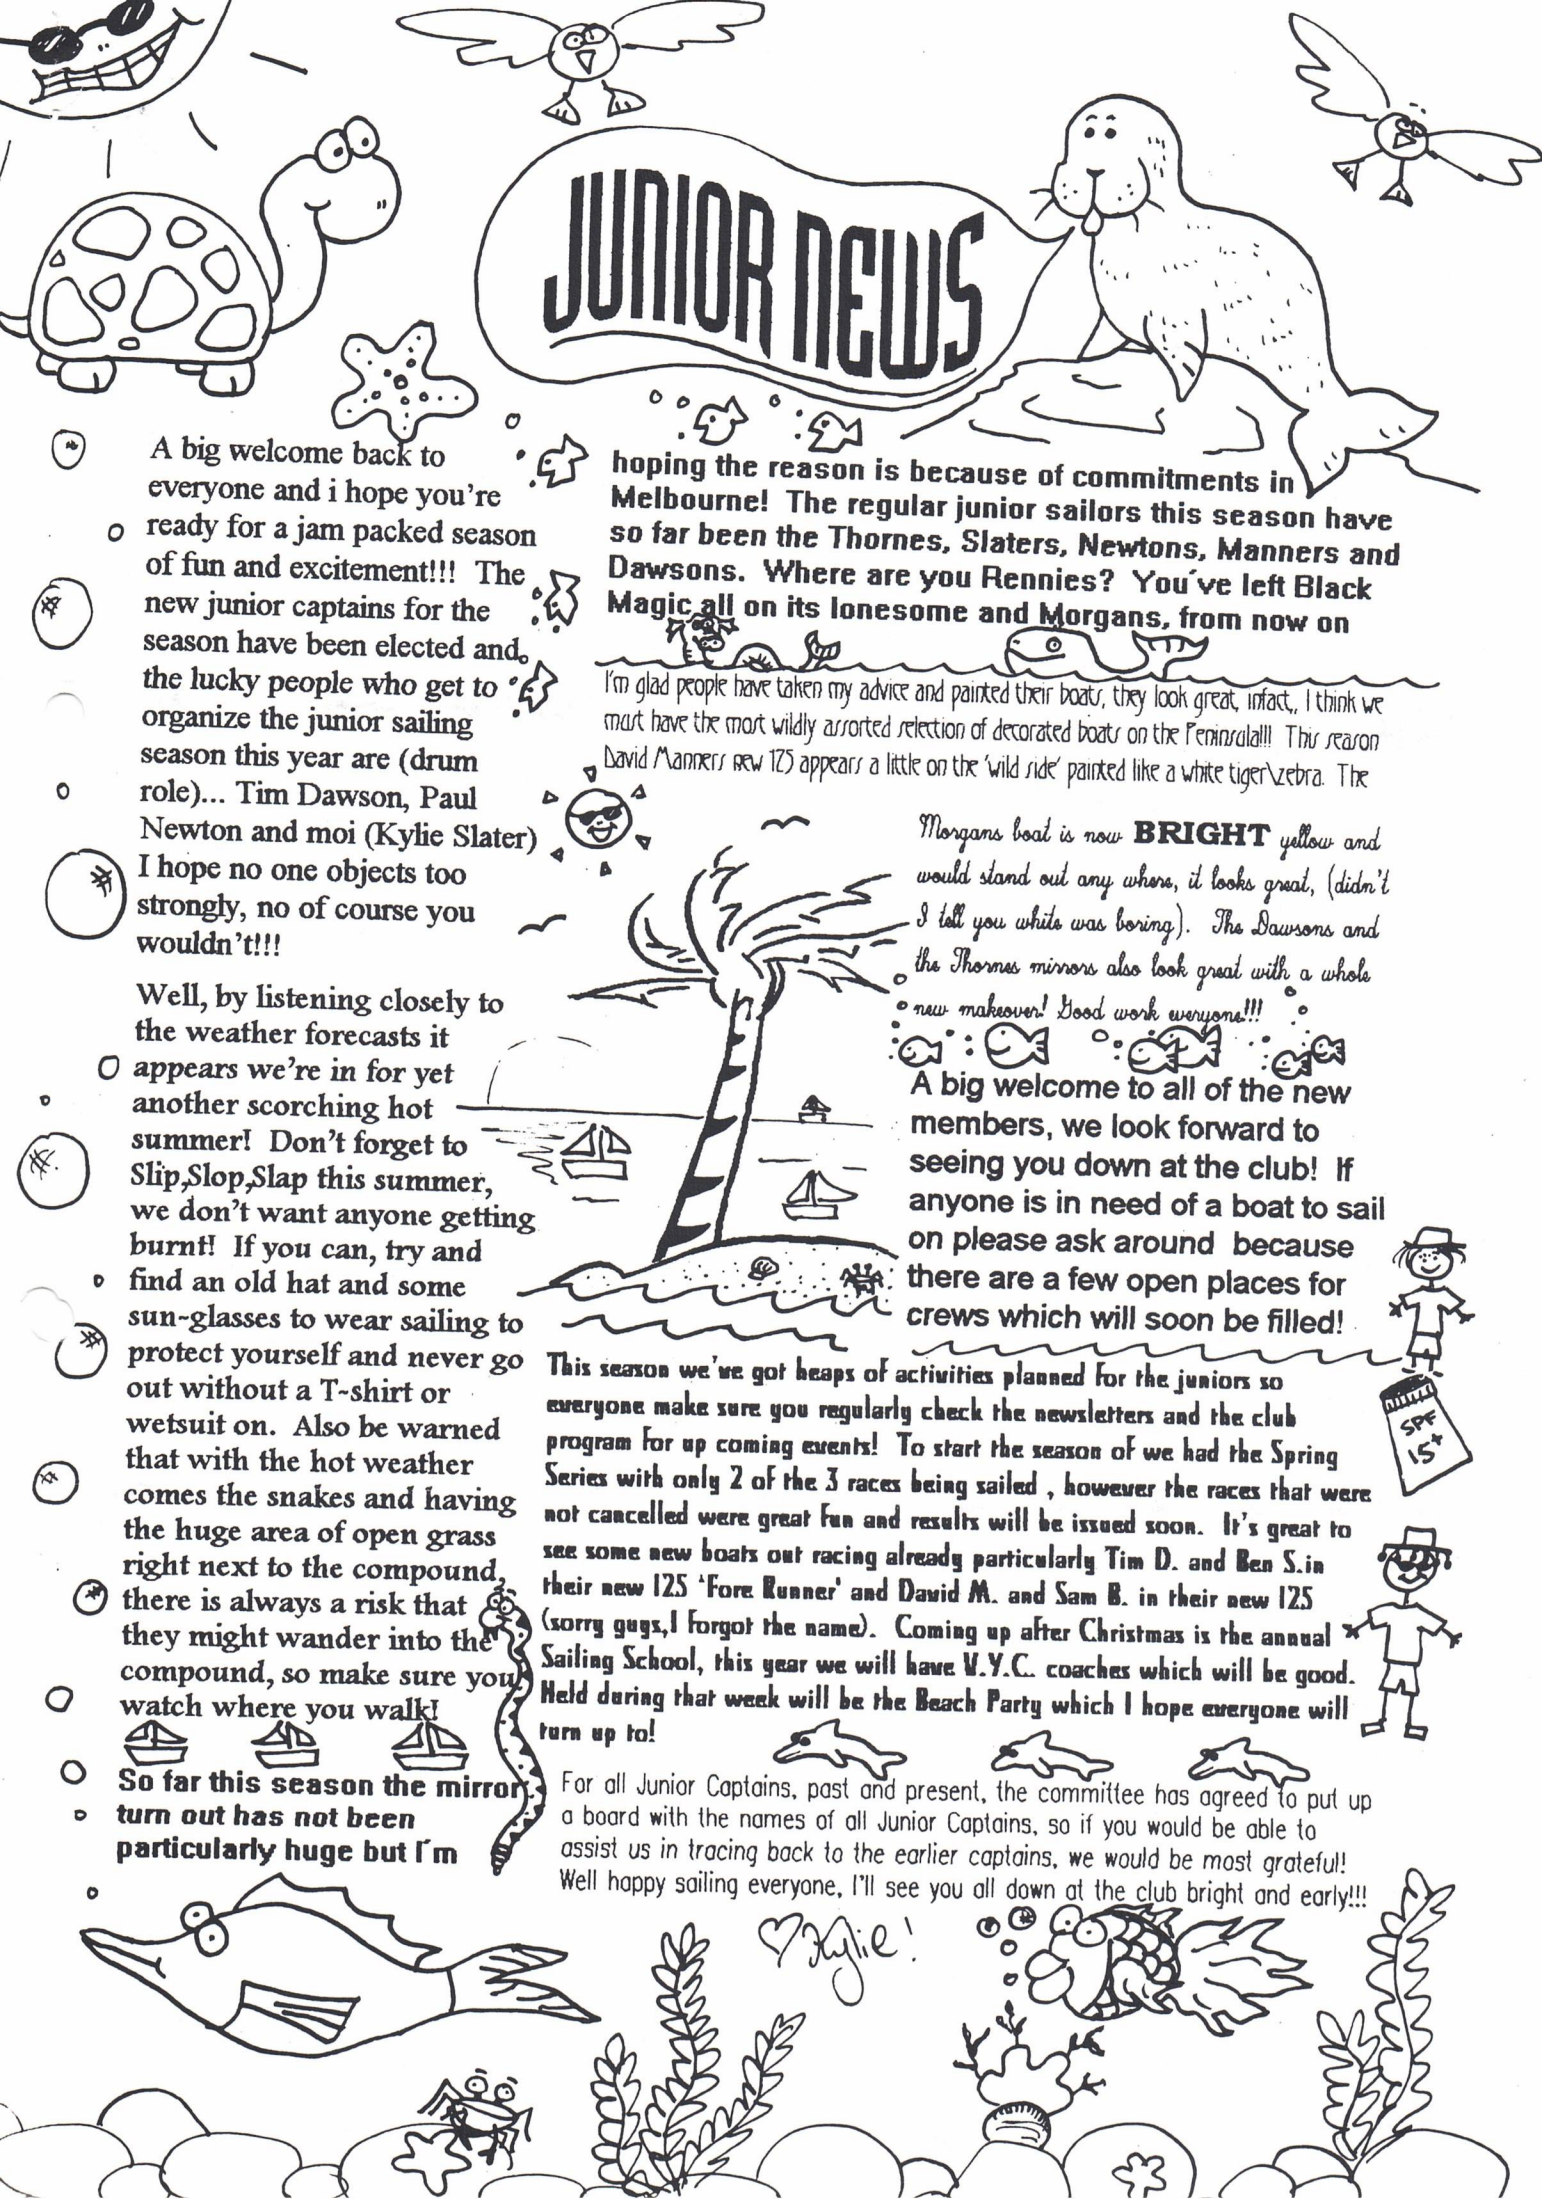 JUNIOR NEWS
A big welcome back to
everyone and i hope you're
ready for a jam packed season
of fun and excitement!!! The
new junior captains for the
season have been elected and
the lucky people who get to
organize the junior sailing
season this year are (drum
role)... Tim Dawson, Paul
Newton and moi (Kylie Slater)
I hope no one objects too
strongly, no of course you
wouldn't!!!
Well, by listening closely to
the weather forecasts it
appears we're in for yet
another scorching hot
summer! Don't forget to
Slip,Slop,Slap this summer,
we don't want anyone getting
burnt! If you can, try and
find an old hat and some
sun-glasses to wear sailing to
protect yourself and never go
out without a T-shirt or
wetsuit on. Also be warned
that with the hot weather
comes the snakes and having
the huge area of open grass
right next to the compound,
there is always a risk that
they might wander into the
compound, so make sure you
watch where you walk!
So far this season the mirror
turn out has not been
particularly huge but I'm
hoping the reason is because of commitments in
Melbourne! The regular junior sailors this season have
so far been the Thornes, Slaters, Newtons, Manners and
Dawsons. Where are you Rennies? You've left Black
Magic all on its lonesome and Morgans, from now on
I'm glad people have taken my advice and painted their boats, they look great, infact,, I think we
must have the most wildly assorted selection of decorated boats on the Peninsula!!! This season
David Manners new 125 appears a little on the 'wild side' painted like a white tiger\zebra. The
Morgans boat is now BRIGHT yellow and
would stand out any where, it looks great, (didn't
I tell you white was boring). The Dawsons and
the Thornes mirrors also look great with a whole
new makeover! Good work everyone!!!
A big welcome to all of the new
members, we look forward to
seeing you down at the club! If
anyone is in need of a boat to sail
on please ask around because
there are a few open places for
crews which will soon be filled!
This season we've got heaps of activities planned for the juniors so
everyone make sure you regularly check the newsletters and the club
program for up coming events! To start the season of we had the Spring
Series with only 2 of the 3 races being sailed , however the races that were
not cancelled were great fun and results will be issued soon. It's great to
see some new boats out racing already particularly Tim D. and Ben S.in
their new 125 'Fore Runner' and David M. and Sam B. in their new 125
(sorry guys,I forgot the name). Coming up after Christmas is the annual
Sailing School, this year we will have V.Y.C. coaches which will be good.
Held during that week will be the Beach Party which I hope everyone will
turn up to!
SPF
15+
For all Junior Captains, past and present, the committee has agreed to put up
a board with the names of all Junior Captains, so if you would be able to
assist us in tracing back to the earlier captains, we would be most grateful!
Well happy sailing everyone, I'll see you all down at the club bright and early!!!
♡Kylie!